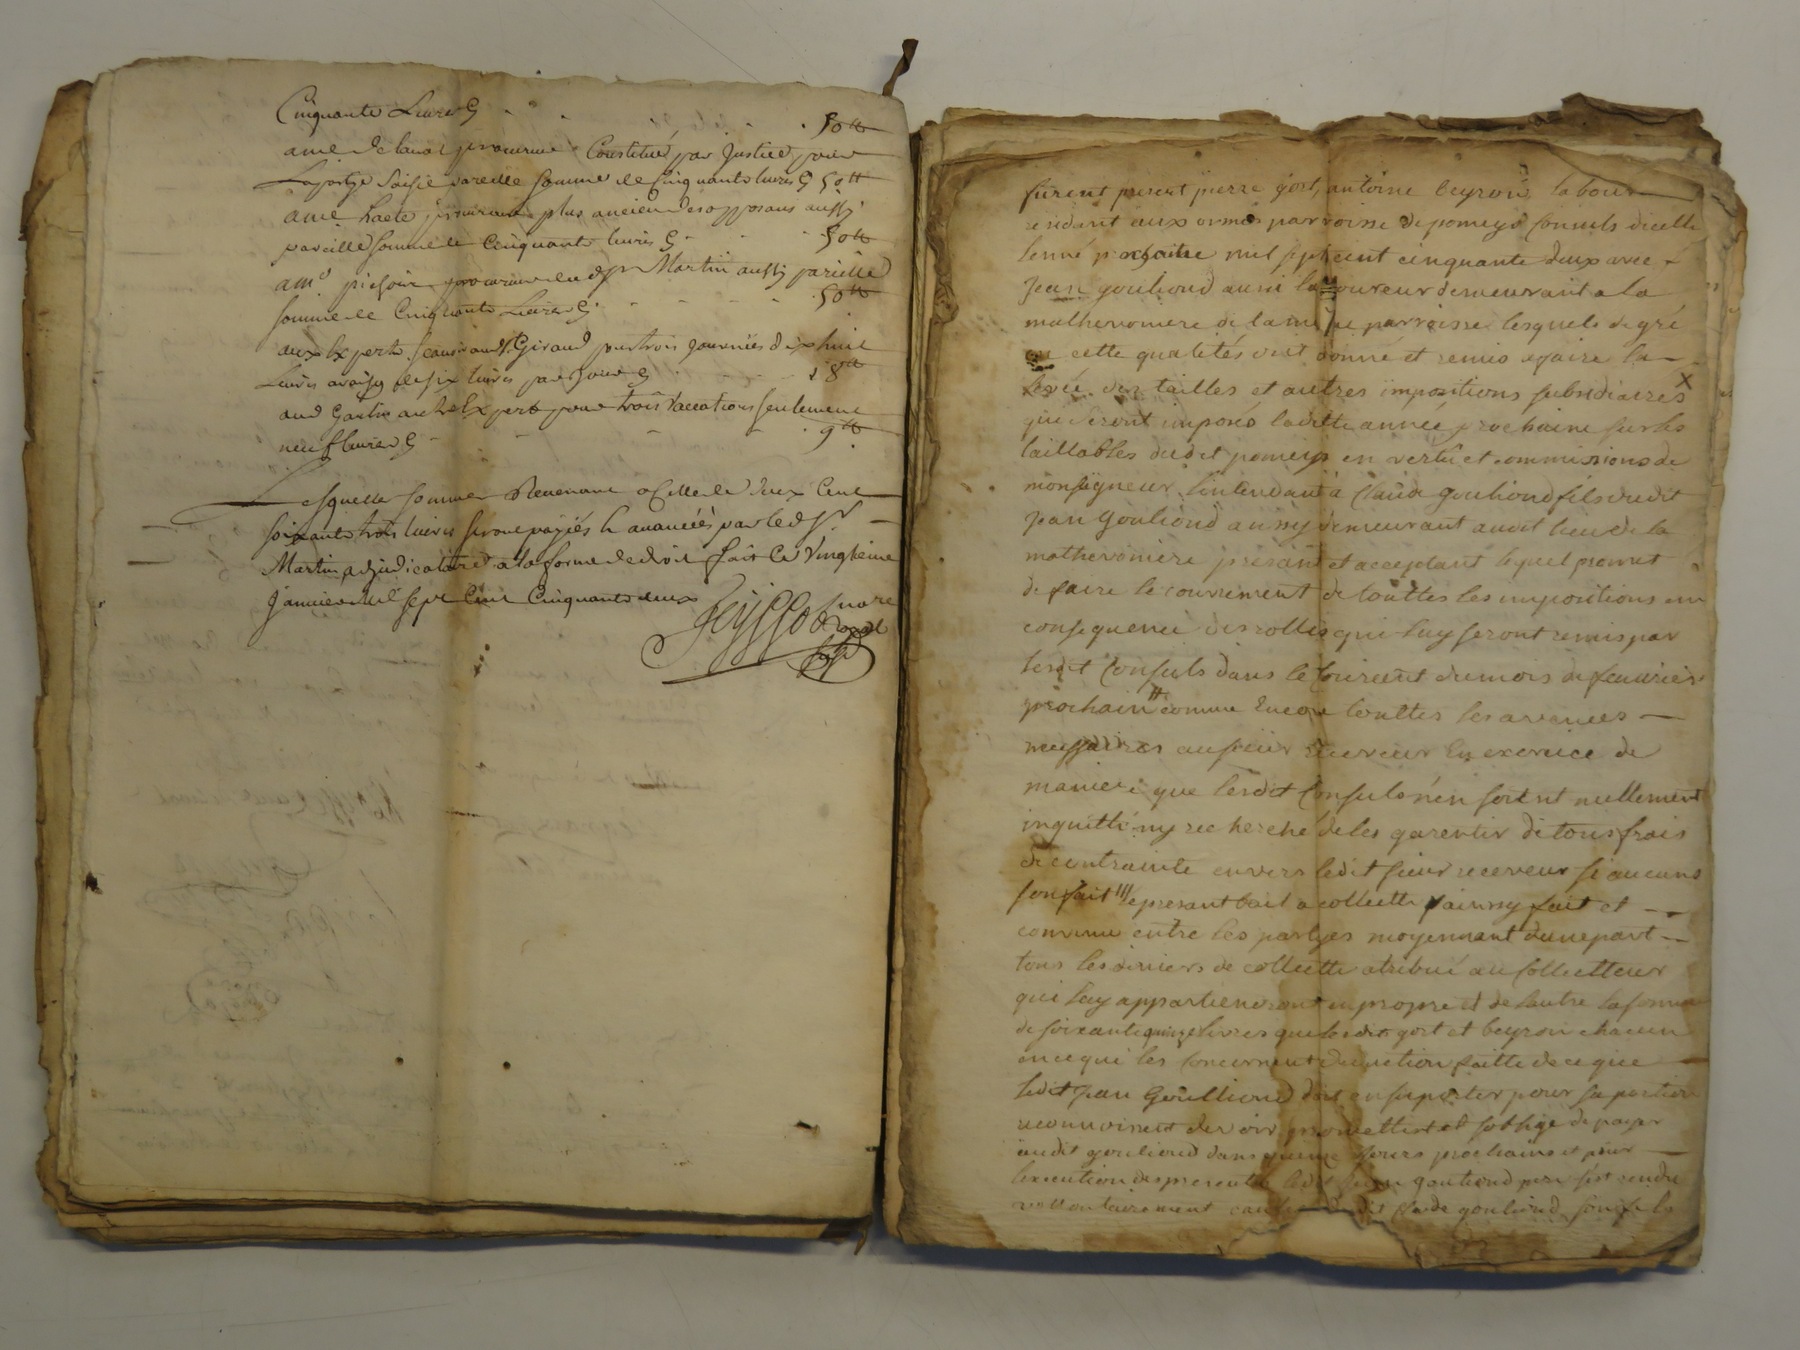 Cinquante Livres 50tt
a me Delaval procureur Constitué par Justice pour
La partye Saisie pareille somme de Cinquante livres 50tt
a me haete procureur plus ancien des opposans aussy
pareille somme de Cinquante livres 50tt
a me procureur du dsr Martin aussy parielle
somme de Cinquante Livres 50tt
aux Experts Giraud pour trois journées dix huit
Livres a raison de six livres par Jour 18tt
aud autre Expert pour trois Vaccations seulement
neuf livres 9tt
Lesquelles sommes Revenant a Celle de deux Cent
soixante trois livres seront payées & avancées par led sr
Martin adjudicataire a la forme de droit fait Ce Vingtieme
Janvier mil sept Cent Cinquante deux
furent present pierre gort, antoine beyron labour
residant aux ormes parroisse de pomeys Consuls dicelle
lenné prochaine mil sept cent cinquante deux avec
Jean gouliond aussi laboureur demeurant a la
matheronniere de la meme parroisse lesquels de gré
cette qualités ont donné et remis a faire la
levée des tailles et autres impositions subsidiaires X
qui seront imposés laditte année prochaine sur les
taillables dudit pomeys en vertu et commissions de
monseigneur lintendant a Claude gouliond fils dudit
Jean Gouliond aussy demeurant audit lieu de la
matheroniere présant et acceptant lequel promet
de faire le couvrement de touttes les impositions en
consequence des rolles qui luy seront remis par
lesdit Consuls dans le Courent du mois de feuvrier
prochain # comme Encore touttes les avances
necessaires au sieur receveur En exercice de
maniere que lesdit Consuls n'en soient nullement
inquitté ny recherché de les garentir de tous frais
de contrainte envers ledit sieur receveur si aucuns
son fait /// le présant bail a collecte fait et
convenu entre les partyes moyennant d'une part
tous les deniers de collecte atribué au Collecteur
qui luy appartiendront en propre et de lautre la somme
de soixante quinze livres que lesdit gort et beyron chacun
en ce qui les Concernent deduction faitte de ce que
ledit Jean Goullione doit en suporter pour sa portion
reconnoissent devoir promettent et soblige de payer
audit gouliond dans quinze Jours prochains et pour
lexecution des presentes ledit Jean gouliond pere sest rendu
vollontairement dit Claude gouliond son fils